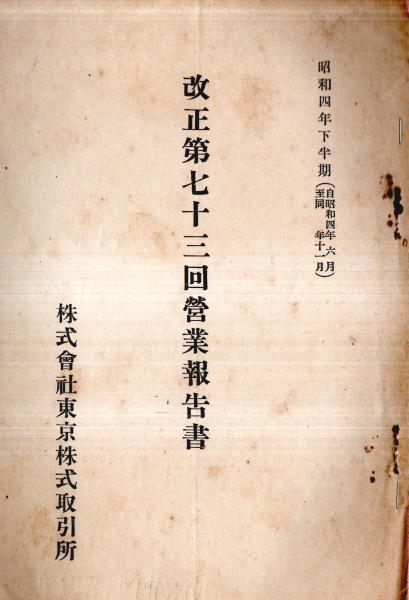 昭和四年下半期（自昭和四年六月
至同年十一月）
改正第七十三回營業報告書
株式會社東京株式取引所